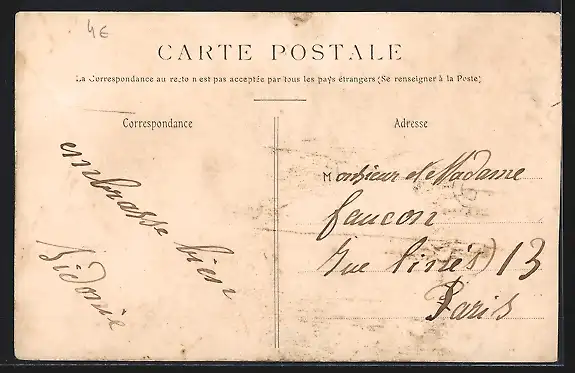 4€
CARTE POSTALE
La Correspondance au recto n'est pas acceptée par tous les pays étrangers (Se renseigner à la Poste)
Correspondance
embrasse bien
Sidonie
Adresse
Monsieur et Madame
faucon
Rue linés) 13
Paris